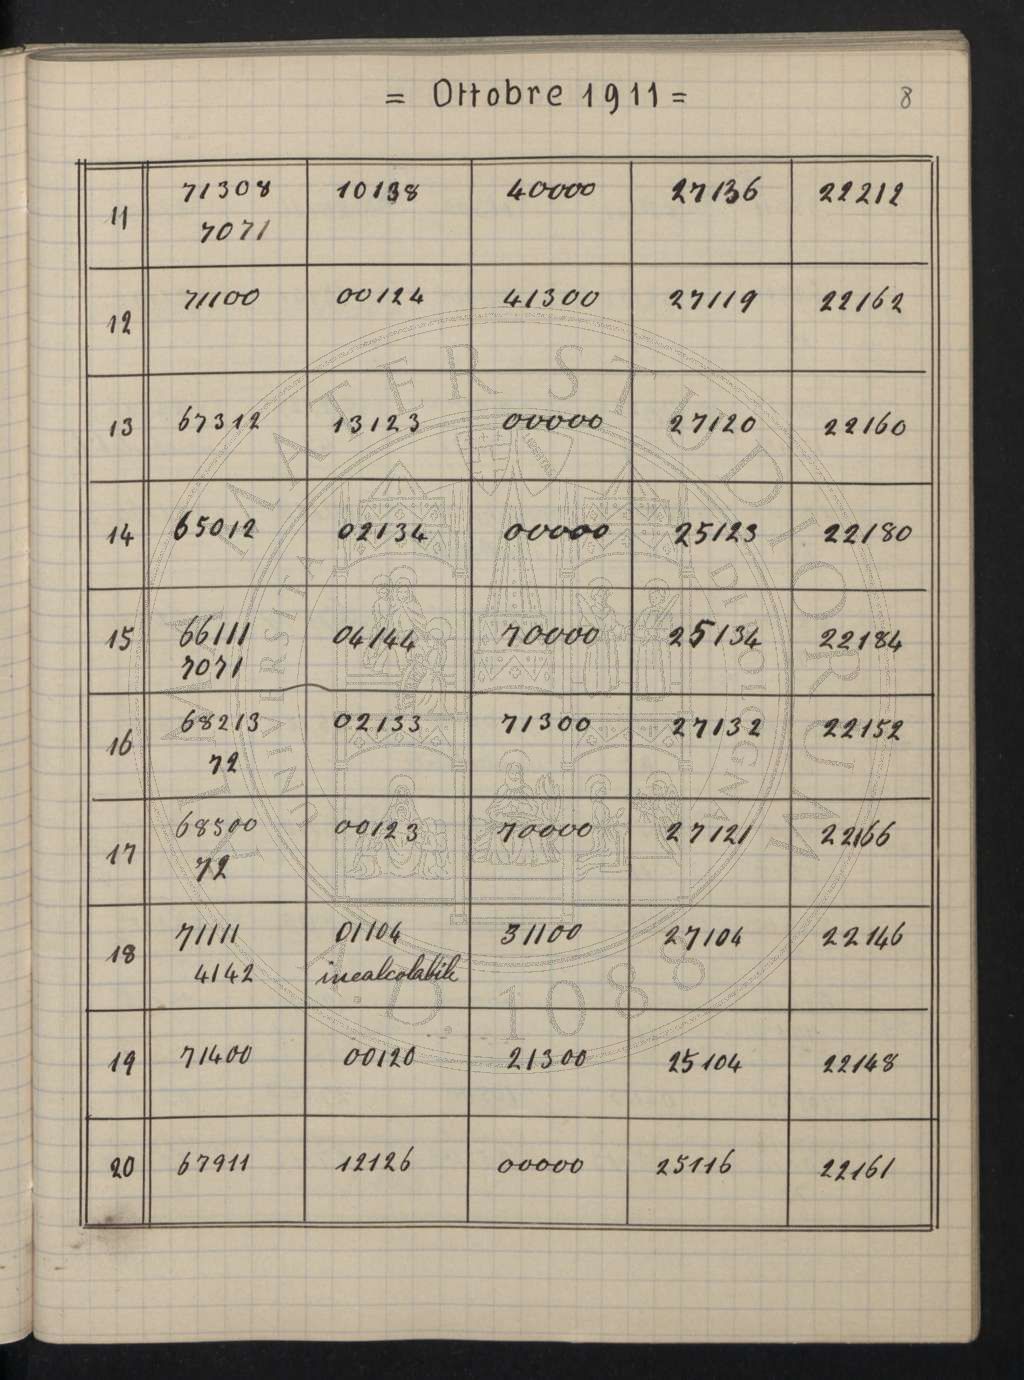 = Ottobre 1911 =
8
11 71308 10138 40000 27136 22212
7071
12 71100 00124 41300 27119 22162
13 67312 13123 00000 27120 22160
14 65012 02134 00000 25123 22180
15 66111 04144 70000 25134 22184
7071
16 68213 02133 71300 27132 22152
72
17 68300 00123 70000 27121 22166
72
18 71111 01104 31100 27104 22146
4142 incalcolabile
19 71400 00120 21300 25104 22148
20 67911 12126 00000 25116 22161
ALMA MATER STUDIORUM
UNIVERSITÀ DI BOLOGNA
A.D. 1088